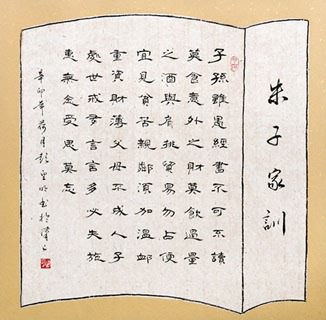 朱子家訓
子孫雖愚經書不可不讀
莫貪意外之財莫飲過量
之酒與肩挑貿易勿占便
宜見貧苦親鄰須加溫卹
重資財薄父母不成人子
處世戒多言言多必失施
惠無念受恩莫忘
辛卯年荷月